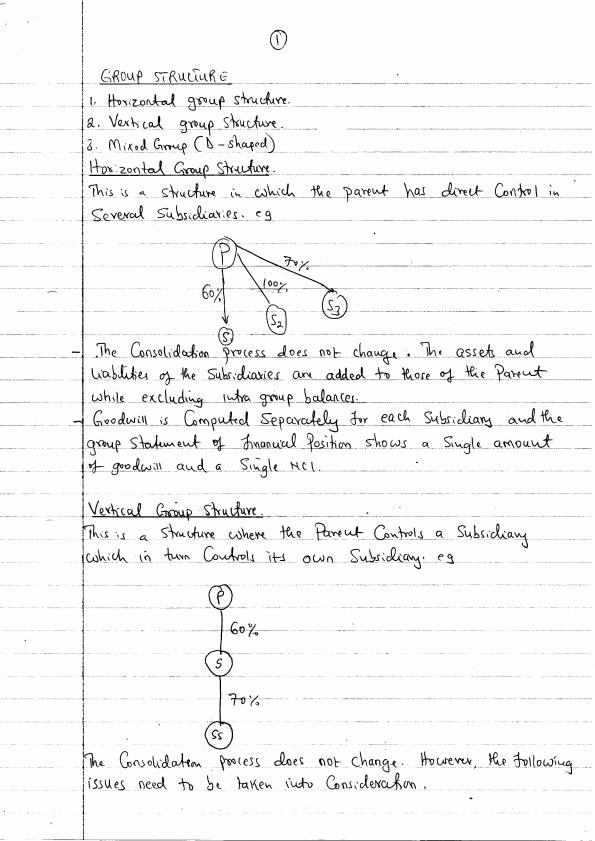 1
GROUP STRUCTURE
1. Horizontal group structure.
2. Vertical group structure.
3. Mixed Group (D-shaped)
Horizontal Group Structure.
This is a structure in which the parent has direct Control in
Several Subsidiaries. eg
P
70%
60%
100%
S3
S2
S
- The Consolidation process does not change. The assets and
liabilities of the Subsidiaries are added to those of the Parent
while excluding intra group balances.
- Goodwill is Computed Separately for each Subsidiary and the
group Statement of financial Position shows a Single amount
of goodwill and a Single NCI.
Vertical Group Structure.
This is a Structure where the Parent Controls a Subsidiary
which in turn Controls its own Subsidiary. eg
P
60%
S
70%
SS
The Consolidation process does not change. However, the following
issues need to be taken into Consideration.